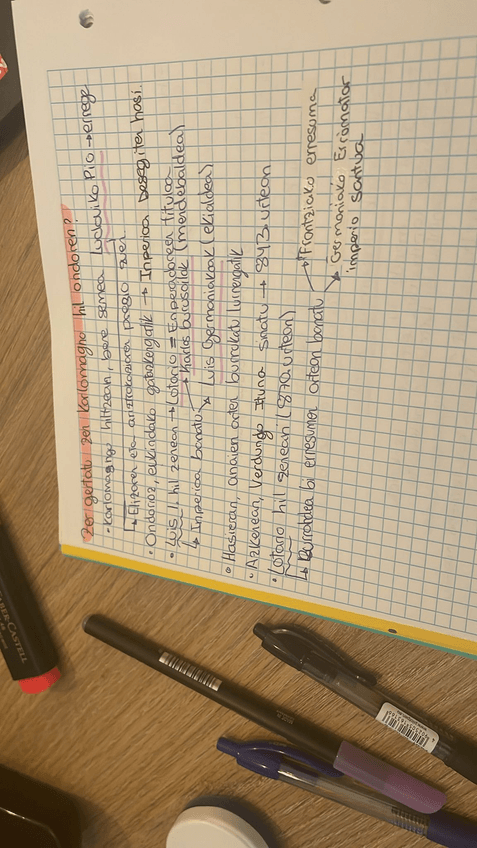 Zer gertatu zen Karlomagno hil ondoren?
• Karlomagno hiltzean, bere semea Luis Pio → errege
↳ Elizaren eta aristokraziaren presio zuen
• Ondoren, eukindako gatazkengatik → Inperioa desegiten hasi
• Luis II hil zenean → Lotario = Enperadorearen titulua
↳ Inperioa banatu → Karlos burusoilak (mendebaldea)
↘ Luis Germaniakoak (ekialdea)
• Hasieran, anaien arten burrukatu lurrengatik
• Azkenean, Verdungo Ituna sinatu → 843. urtean
• Lotario hil zenean (870. urtean)
↳ Lurraldea bi erresumen artean banatu → Frantziako erresuma
↘ Germaniako Erromatar
inperio santua
FABER-CASTELL